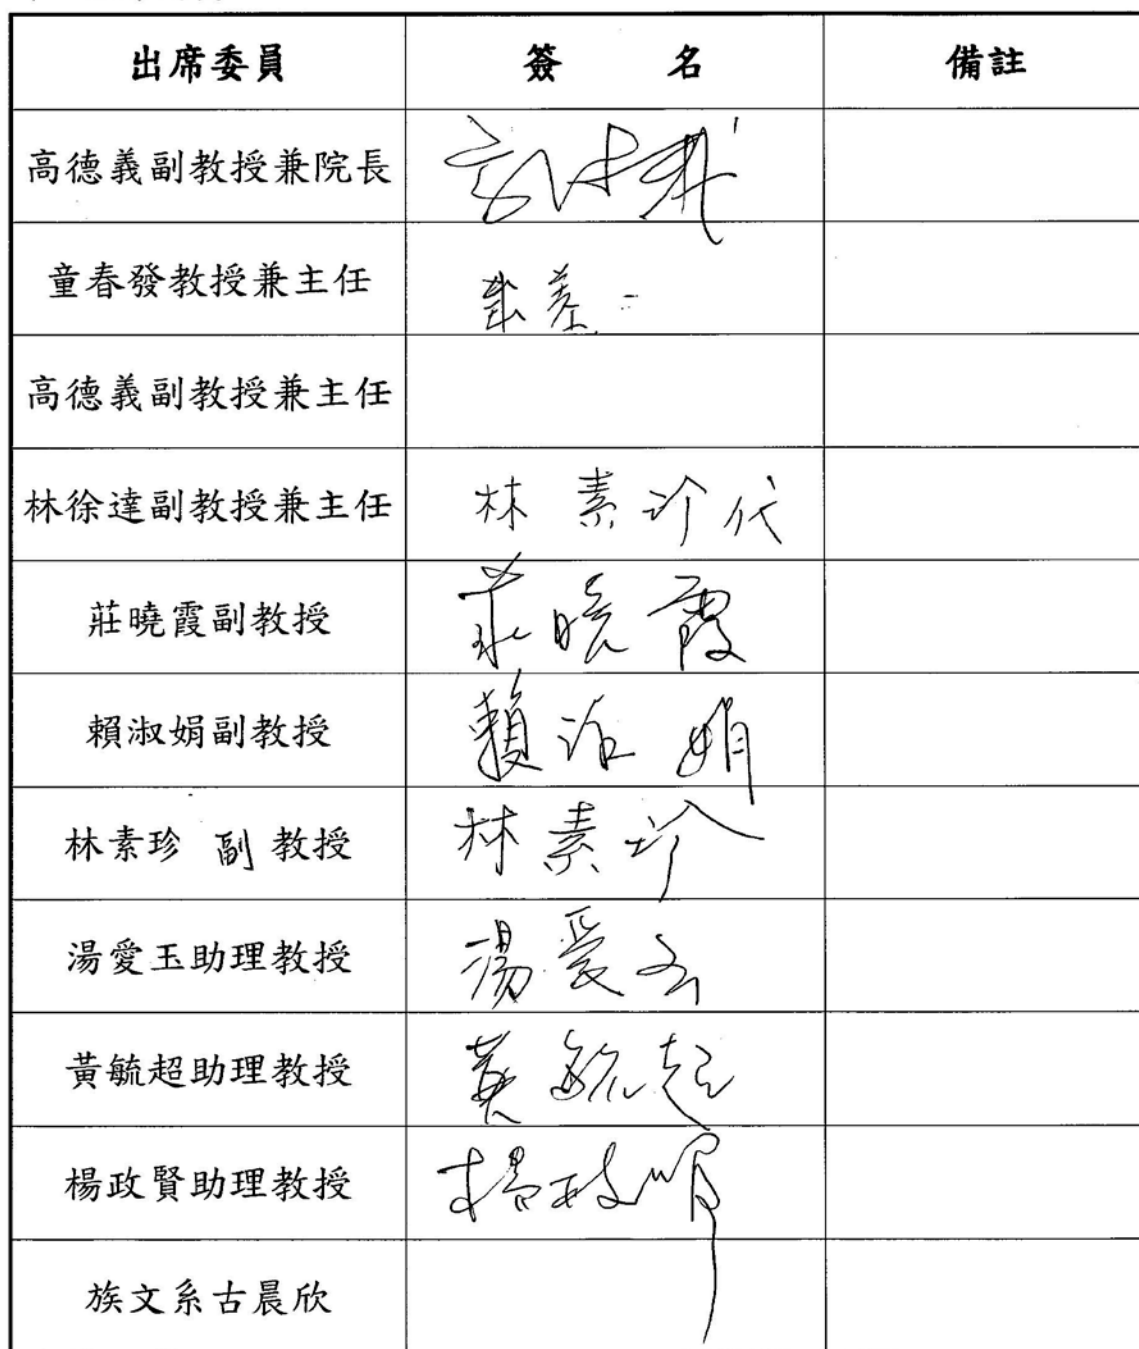 出席委員 簽 名 備註
高德義副教授兼院長
童春發教授兼主任 公差
高德義副教授兼主任
林徐達副教授兼主任 林素珍代
莊曉霞副教授 莊曉霞
賴淑娟副教授 賴淑娟
林素珍 副 教授 林素珍
湯愛玉助理教授 湯愛玉
黃毓超助理教授 黃毓超
楊政賢助理教授 楊政賢
族文系古晨欣